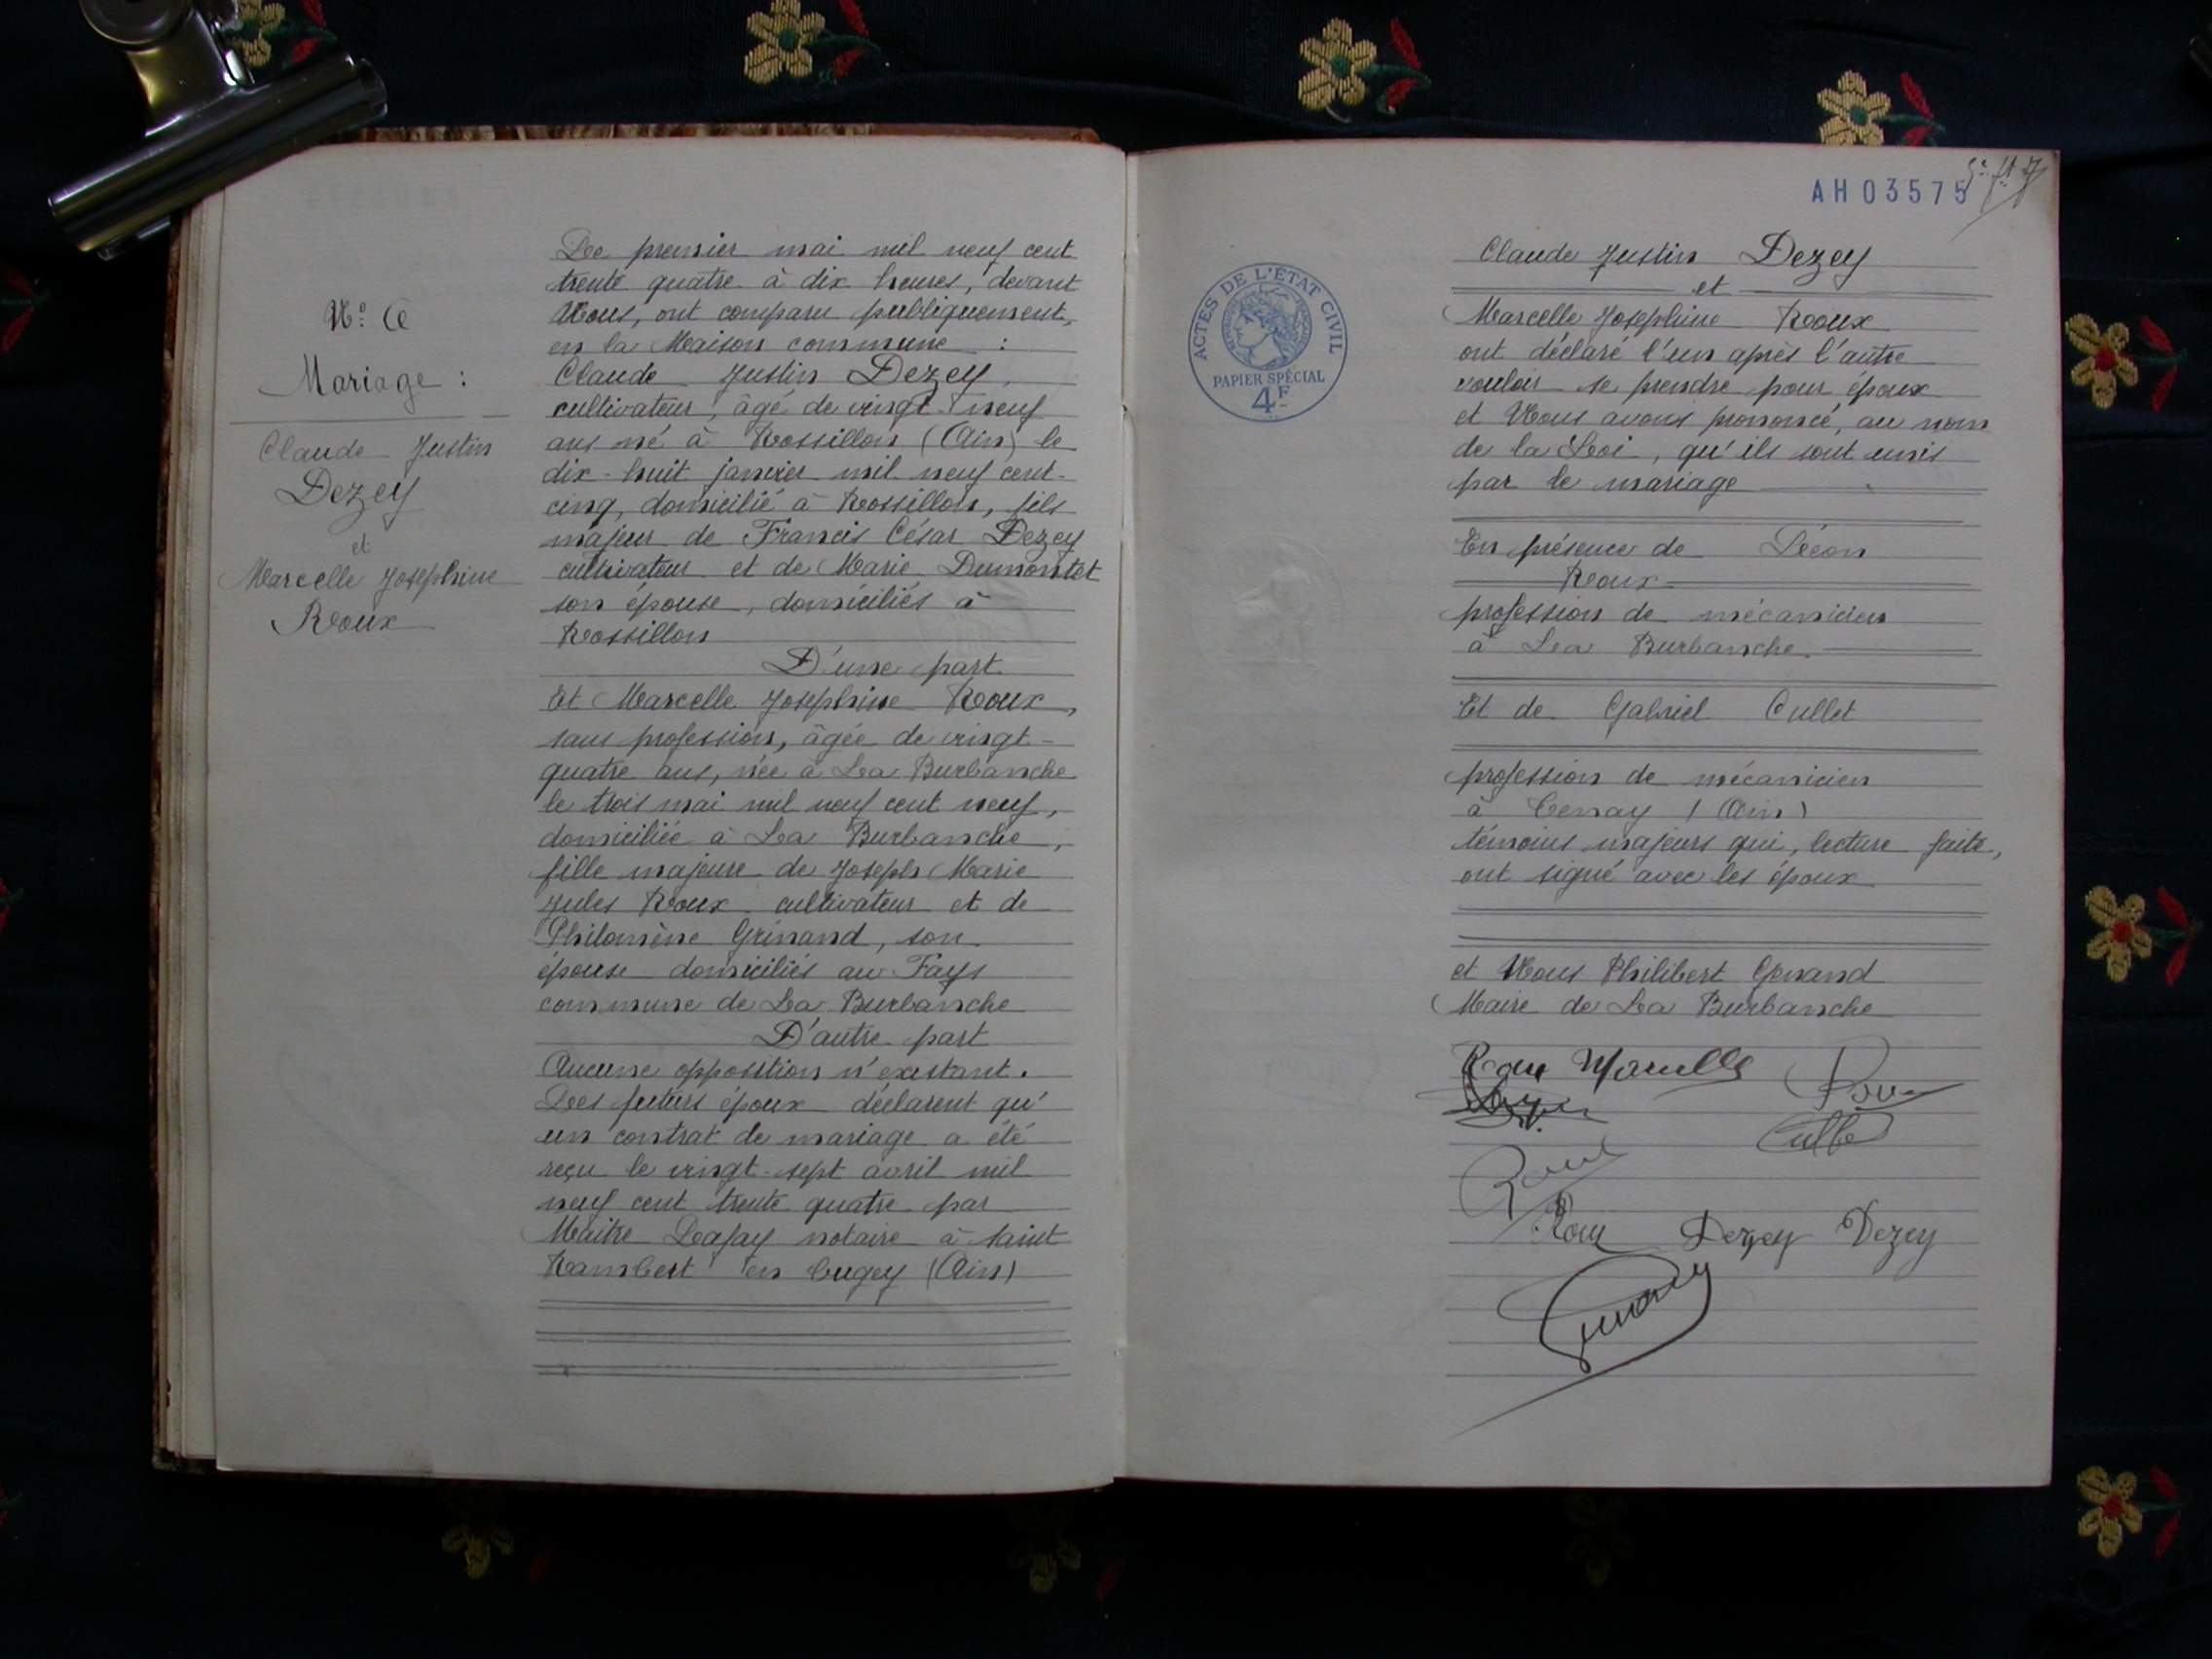 Nº
Mariage :
Claude Justin
Dezey
et
Marcelle Josephine
Roux
Le premier mai mil neuf cent
trente quatre à dix heures, devant
Nous, ont comparu publiquement,
en la Maison commune :
Claude Justin Dezey,
cultivateur, âgé de vingt-neuf
ans né à Rossillon (Ain) le
dix-huit janvier mil neuf cent-
cinq, domicilié à Rossillon, fils
majeur de Francis César Dezey
cultivateur et de Marie Dumontet
son épouse, domiciliés à
Rossillon
D'une part
Et Marcelle Josephine Roux,
sans profession, âgée de vingt-
quatre ans, née à La Burbanche
le trois mai mil neuf cent neuf,
domiciliée à La Burbanche,
fille majeure de Joseph Marie
Jules Roux cultivateur et de
Philomène Grinand, son
épouse domiciliés au Fays
commune de La Burbanche
D'autre part
Aucune opposition n'existant.
Les futurs époux déclarent qu'
un contrat de mariage a été
reçu le vingt-sept avril mil
neuf cent trente quatre par
Maitre Lafay notaire à Saint
Rambert en Bugey (Ain)
AH 03575
ACTES DE L'ÉTAT CIVIL
PAPIER SPÉCIAL
4F
Claude Justin Dezey
et
Marcelle Josephine Roux
ont déclaré l'un après l'autre
vouloir se prendre pour époux
et Nous avons prononcé, au nom
de la Loi, qu'ils sont unis
par le mariage
En présence de Léon
Roux
profession de mécanicien
à La Burbanche
Et de Gabriel Cullet
profession de mécanicien
à Tenay (Ain)
témoins majeurs qui, lecture faite,
ont signé avec les époux
et Nous Philibert Grinand
Maire de La Burbanche
Roux Marcelle Roux
Cullet
Roux
Roux Dezey Dezey